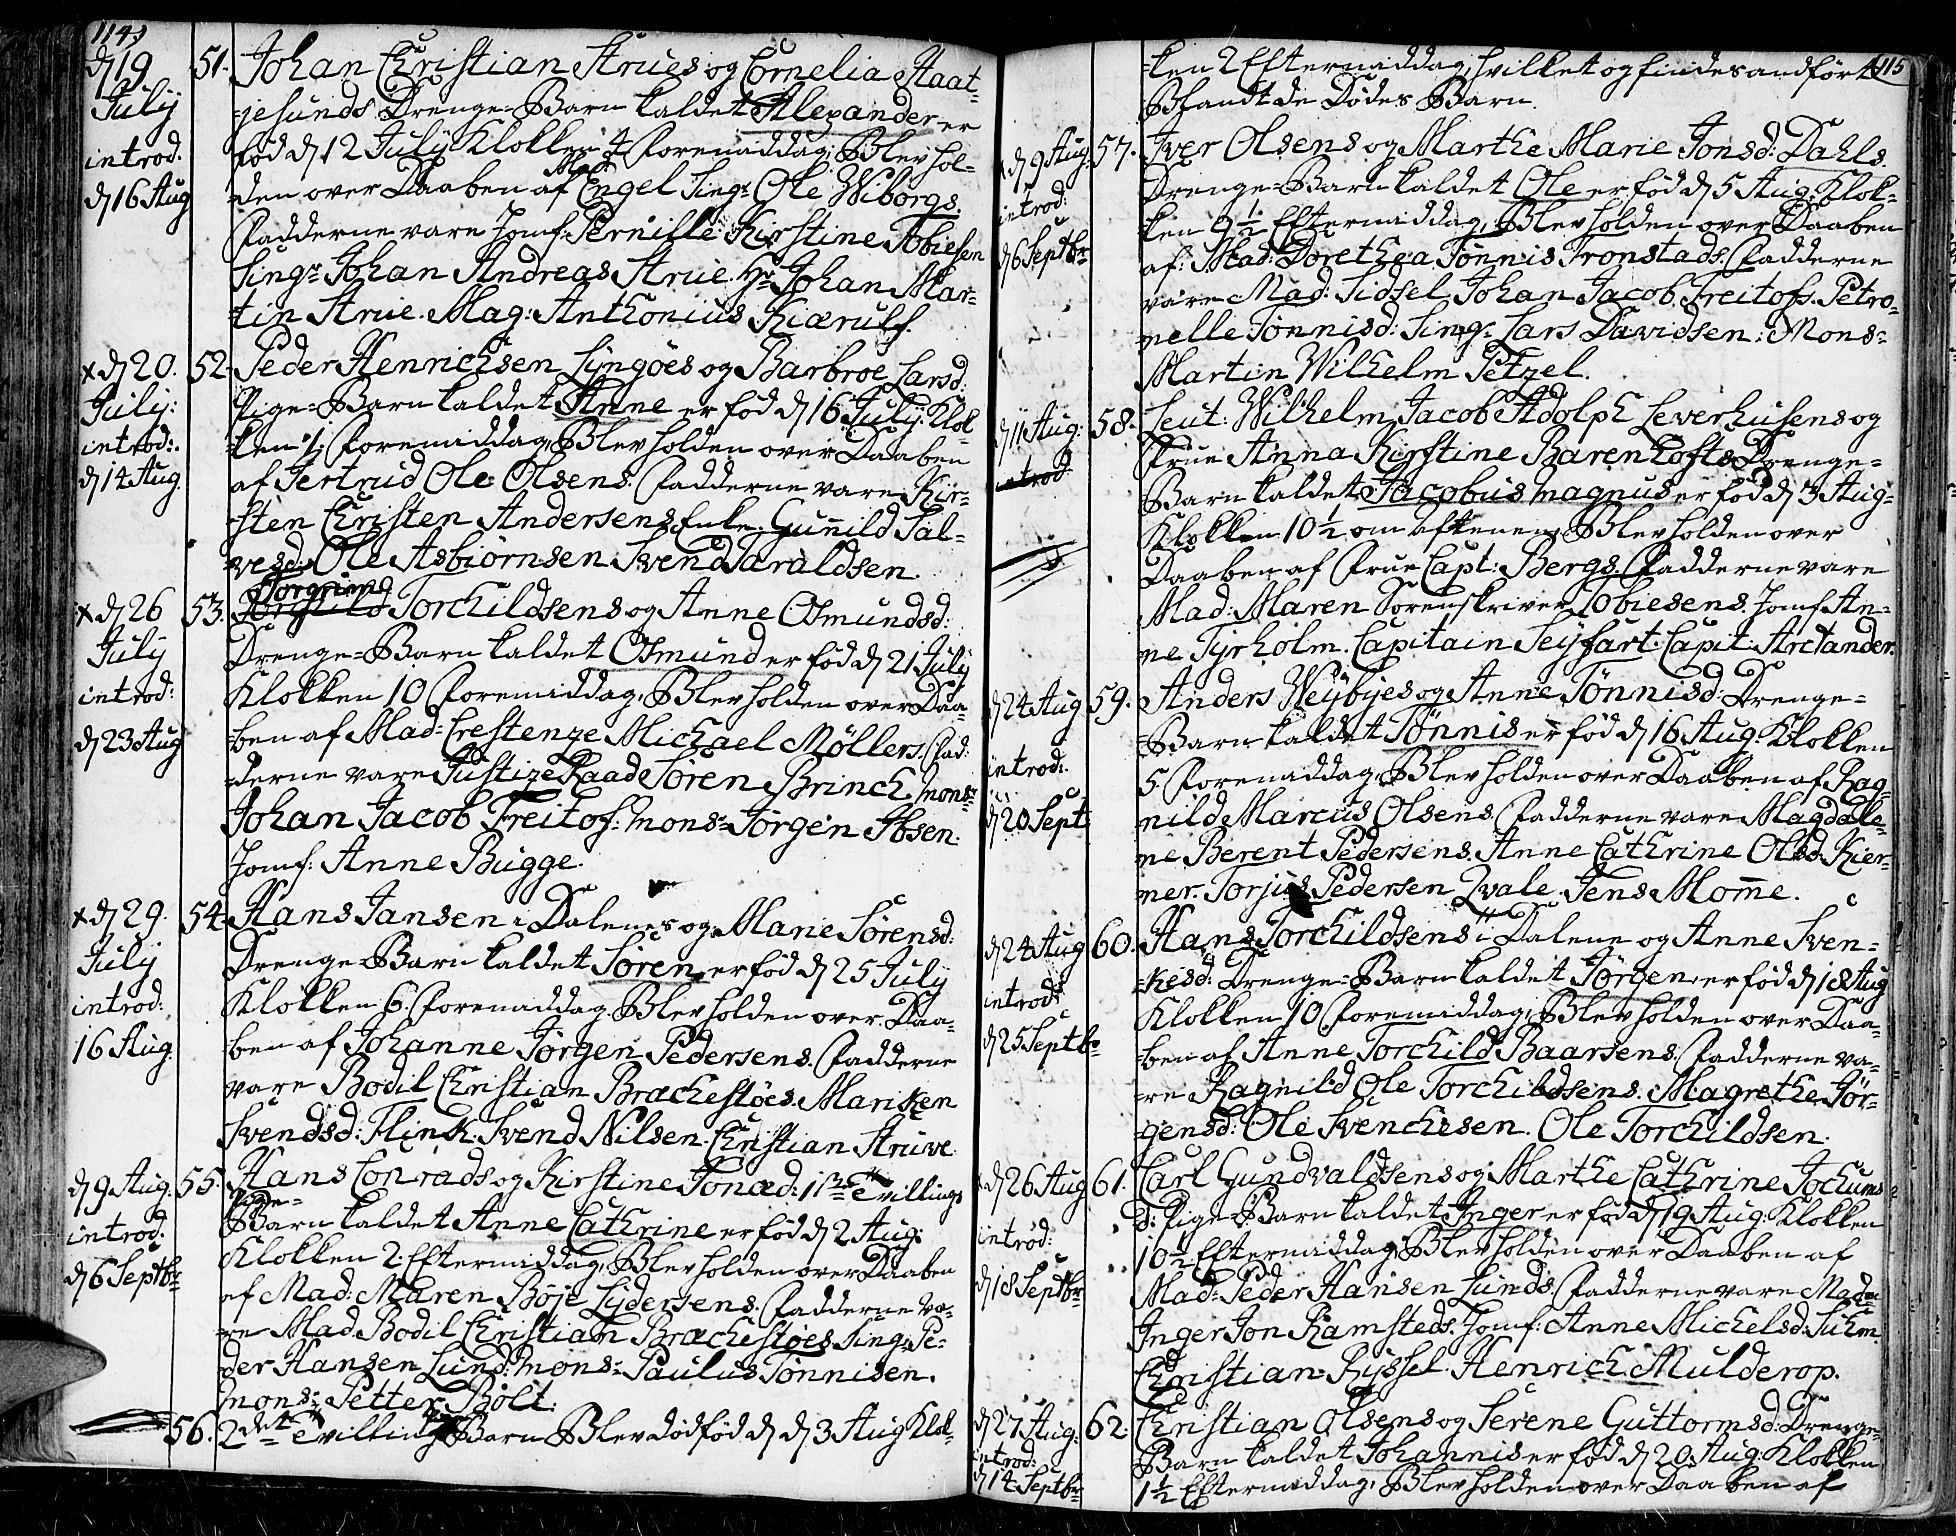 114)
d 19 July introd. d 16 Aug
51. Johan Christian Strues og Cornelia Staat-
jesunds Drenge-Barn kaldet Alexander er
fød d 12 July Klokken 4 Formiddag. Blev hol-
den over Daaben af Mad Engel Sing: Ole Wiborgs.
Fadderne vare Jomf: Pernille Kirstine Tobiesen
Singr Johan Andreas Strue. Hr Johan Mar-
tin Strue. Mag: Anthonius Kiærulf.
x d 20. July: introd: d 14 Aug.
52. Peder Henrichsen Lyngøes og Barbroe Larsd:
Pige-Barn kaldet Anne er fød d 16 July Klok-
ken Formiddag, Blev holden over Daaben
af Gertrud Ole Olsens. Fadderne vare Kir-
sten Christen Andersens Enke. Gunild Sal-
vesd: Ole Asbiørnsen Svend Taraldsen.
x d 26 July introd: d 23 Aug
53. Torgrim Torchildsens og Anne Osmundsd:
Drenge-Barn kaldet Osmund er fød d 21 July
Klokken 10 Formiddag, Blev holden over Daa-
ben af Mad: Crestenze Michael Møllers. Fad-
derne vare Justize Raad Søren Brinch Mons:
Johan Jacob Freitof: Mons: Jørgen Ibsen.
Jomf: Anne Bugge.
x d 29. July introd: 16 Aug.
54. Hans Jansen i Dalenes og Marie Sørensd:
Drenge-Barn kaldet Søren er fød d 25 July
Klokken 6. Formiddag. Blev holden over Daa-
ben af Johanne Jørgen Pedersens. Fadderne
vare Bodil Christian Brachestøes. Mariken
Svendsd: Flink. Svend Nilsen. Christian Struve.
d 9 Aug. introd: d 6 Septbr
55. Hans Conrads og Kirstine Jonæd: 1ste Tvillings
Pige-
Barn kaldet Anne Cathrine er fød d 2 Aug:
Klokken 2 Eftermiddag, Blev holden over Daaben
af Mad: Maren Bøje Lydersens. Fadderne va-
re Mad. Bodil Christian Brachestøes Sing: Pe-
der Hansen Lund: Mons: Paulus Tønnisen.
Mons: Petter Bolt.
56. 2det Tvilling Barn Blev dødfød d d 3 Aug Klok-
115
ken 2 Eftermiddag, hvilket og findes andført
Blandt de Dødes Barn.
x d 9 Aug. introd: d 6 Septbr
57. Iver Olsens og Marthe Marie Jonsd: Dahls.
Drenge-Barn kaldet Ole er fød d 5 Aug: Klok-
ken 9 1/2 Eftermiddag, Blev holden over Daaben
af: Mad: Dorethea Tønnis Tronstads. Fadderne
vare Mad: Sidsel Johan Jacob Freitofs. Petro-
nelle Tønnisd: Sing: Lars Davidsen: Mons-
Martin Wilhelm Petzel.
d 11 Aug: introd:
58. Leut: Wilhelm Jacob Adolph Leverhusens og
Frue Anna Kirstine Barenhofts Drenge-
Barn kaldet Jacobus Magnus er fød d 3 Aug-
Klokken 10 1/2 om aftenen, Blev holden over
Daaben af Frue Capt: Bergs. Fadderne vare
Mad: Maren Sorenskriver Tobiesens. Jomf: An-
ne Tyrholm. Capitain Seyfart. Capit: Arctander.
d 24 Aug introd: d 20 Sept:
59. Anders Weybyes og Anne Tønnisd: Drenge-
Barn kaldet Tønnis er fød d 16 Aug: Klokken
5. Formiddag, Blev holden over Daaben af Rag-
nild Marcus Olsens. Fadderne vare Magdale-
ne Berent Pedersens. Anne Cathrine Olsd: Kier-
ner. Torjus Pedersen Qvale. Jens Momme.
d 24 Aug introd: d 25 Septbr
60. Hans Torchildsens i Dalene og Anne Sven-
kesd: Drenge-Barn kaldet Jørgen er fød d 18 Aug
Klokken 10 Formiddag, Blev holden over Daa-
ben af Anne Torchild Baarsens. Fadderne va-
re Ragnild Ole Torchildsens. Magrethe Jør-
gensd: Ole Svenchesen. Ole Torchildsen.
d 26 Aug introd: d 18 Septbr
61. Carl Gundvaldsens og Marthe Cathrine Jochums-
d: Pige-Barn kaldet Inger er fød d 19 Aug: Klokken
10 1/2 Eftermiddag, Blev holden over Daaben af
Mad: Peder Hansen Lunds. Fadderne vare Mad-
Inger Jon Ramsteds. Jomf: Anne Michelsd: Suhm.
Christian Ryssel. Henrich Mulderop.
d 27 Aug: introd: d 14 Septbr
62. Christian Olsens og Serene Guttormsd: Drenge-
Barn kaldet Johannis er fød d 20. Aug: Klokken
1 1/2 Eftermiddag, Blev holden over Daaben af